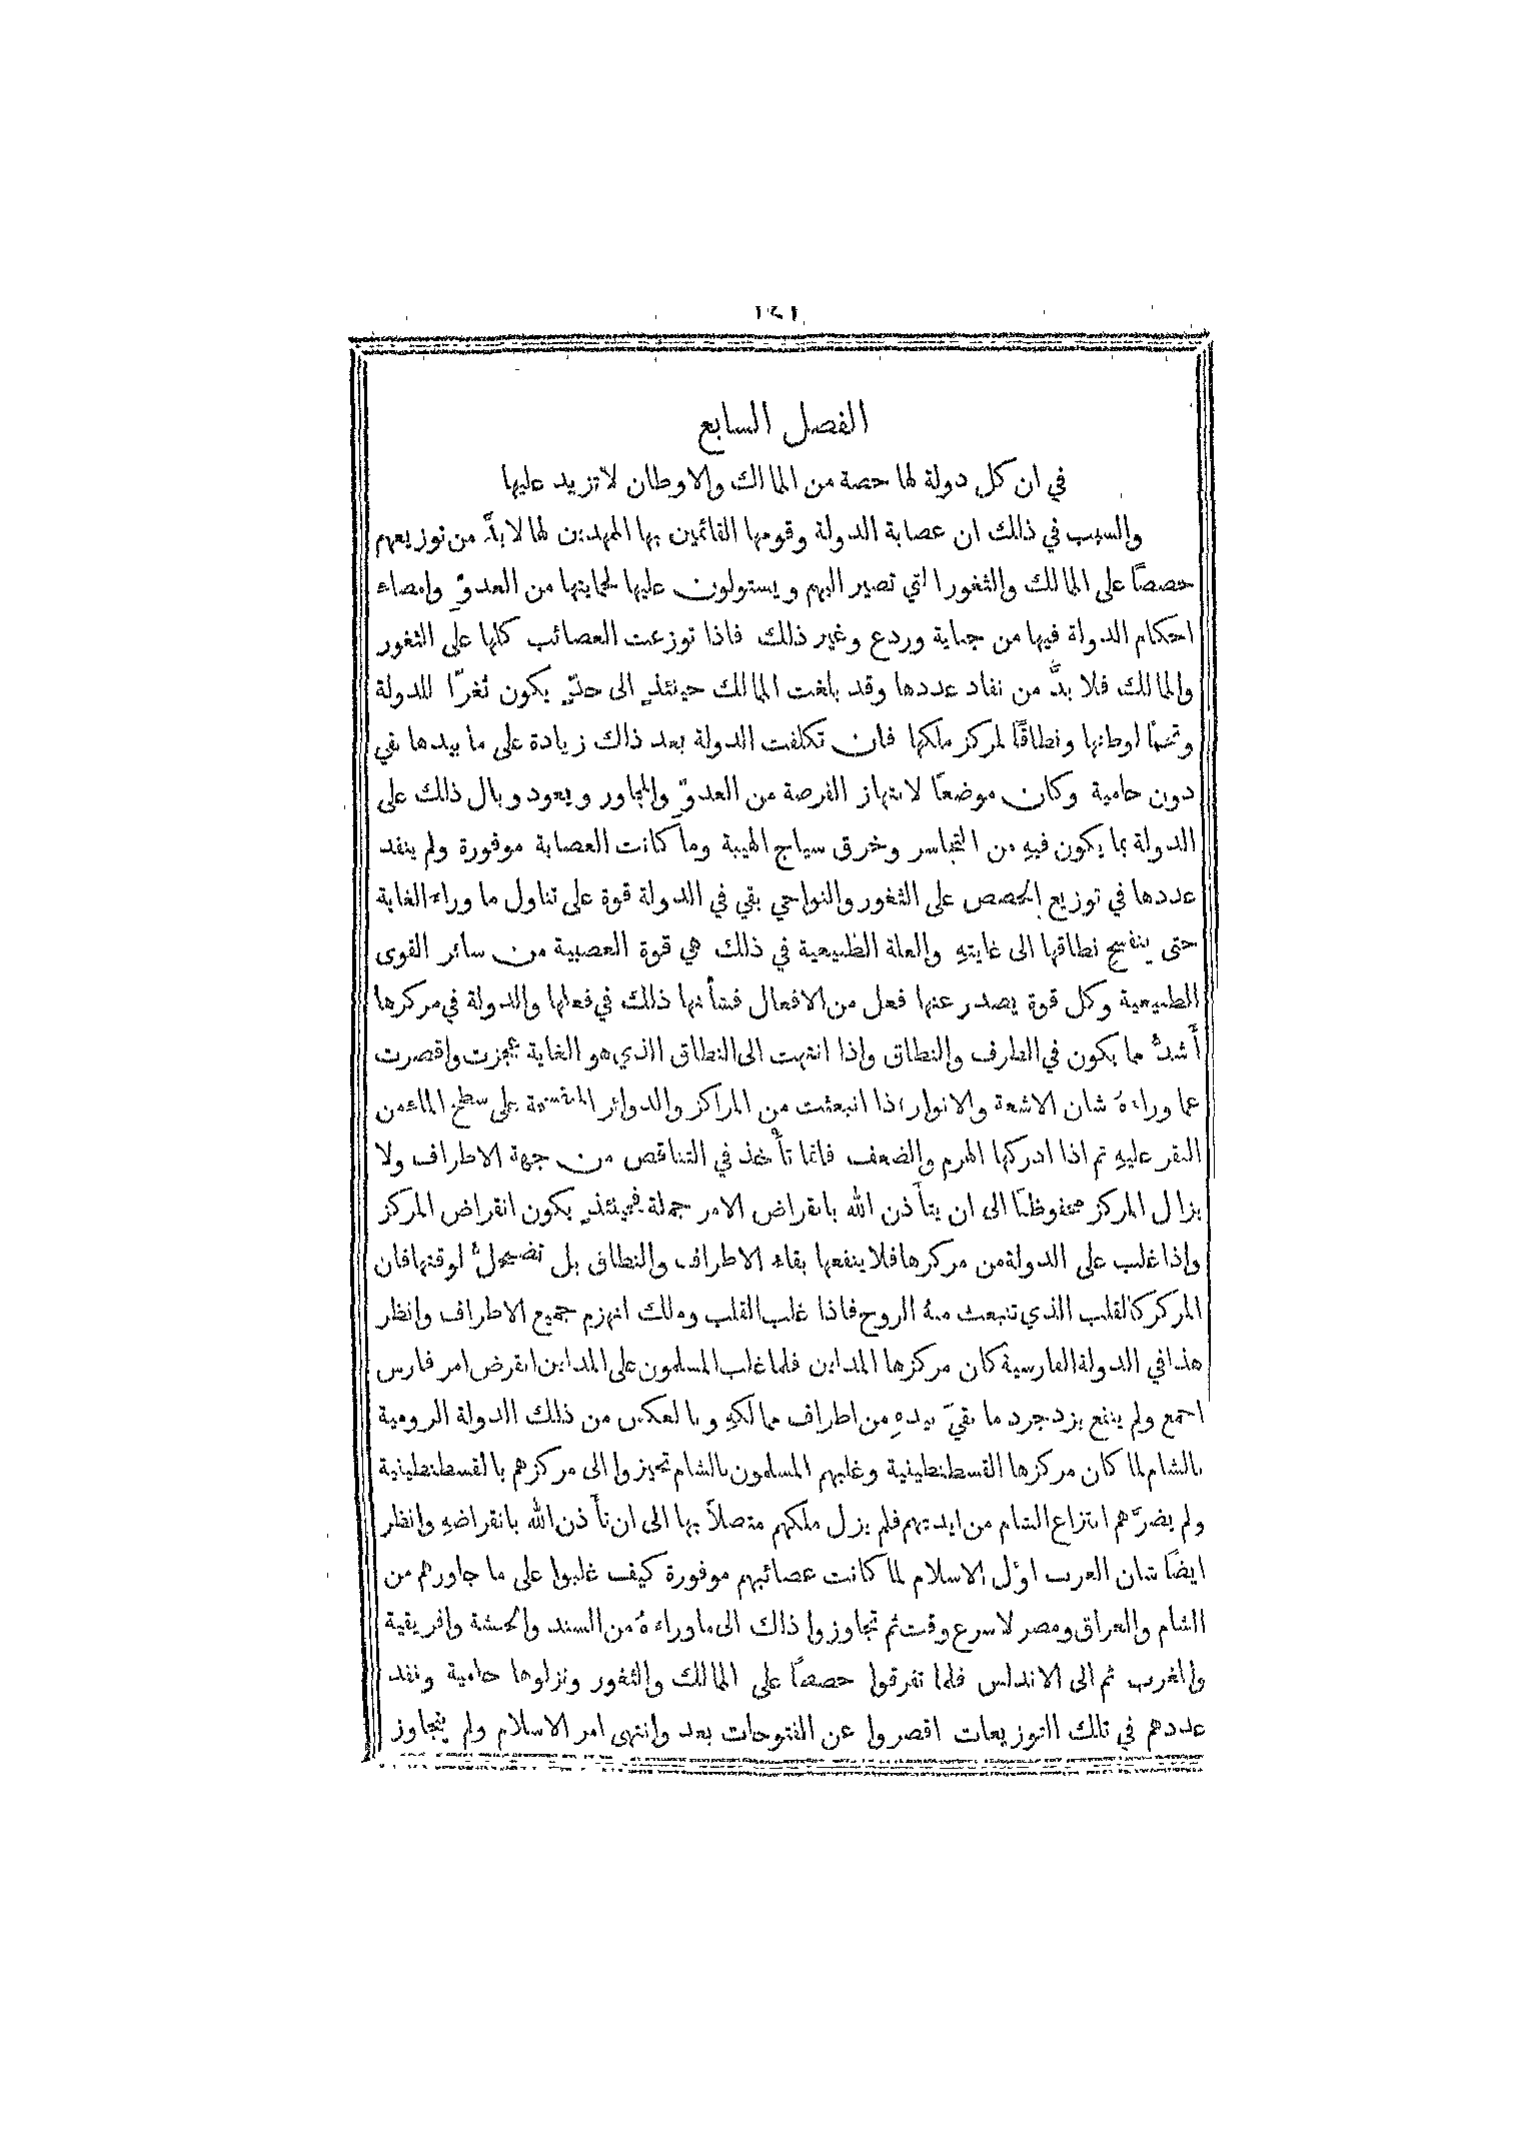 ١٤١
الفصل السابع
في ان كل دولة لها حصة من المالك والاوطان لا تزيد عليها
والسبب في ذلك ان عصابة الدولة وقومها القائمين بها الممهدين لها لا بدَّ من توزيعهم
حصصًا على المالك والثغور التي تصير اليهم ويستولون عليها لحمايتها من العدوّ وامضاء
احكام الدولة فيها من جباية وردع وغير ذلك فاذا توزعت العصائب كلها على الثغور
والمالك فلا بدَّ من نفاد عددها وقد بلغت المالك حينئذٍ الى حدٍّ يكون ثغرًا للدولة
وتخمًا لوطنها ونطاقًا لمركز ملكها فان تكلفت الدولة بعد ذلك زيادة على ما بيدها بقي
دون حامية وكان موضعًا لانتهاز الفرصة من العدوّ والمجاور ويعود وبال ذلك على
الدولة بما يكون فيهِ من التجاسر وخرق سياج الهيبة وما كانت العصابة موفورة ولم ينفد
عددها في توزيع الحصص على الثغور والنواحي بقي في الدولة قوة على تناول ما وراء الغاية
حتى ينفسح نطاقها الى غايتهِ والعلة الطبيعية في ذلك هي قوة العصبية من سائر القوى
الطبيعية وكل قوة يصدر عنها فعل من الافعال فشأنها ذلك في فعلها والدولة في مركزها
أشدُّ مما يكون في الطرف والنطاق واذا انتهت الى النطاق الذي هو الغاية عجزت واقصرت
عما وراءهُ شان الاشعة والانوار اذا انبعثت من المراكز والدوائر المنفسحة على سطح الماء من
النقر عليهِ ثم اذا ادركها الهرم والضعف فانما تأْخذ في التناقص من جهة الاطراف ولا
يزال المركز محفوظًا الى ان يتأَذن الله بانقراض الامر جملة فحينئذٍ يكون انقراض المركز
واذا غلب على الدولة من مركزها فلا ينفعها بقاء الاطراف والنطاق بل تضمحلُّ لوقتها فان
المركز كالقلب الذي تنبعث منهُ الروح فاذا غلب القلب وملك انهزم جميع الاطراف وانظر
هذا في الدولة الفارسية كان مركزها المداين فلما غلب المسلمون على المداين انقرض امر فارس
اجمع ولم ينفع يزدجرد ما بقيَ بيدهِ من اطراف ممالكهِ وبالعكس من ذلك الدولة الرومية
بالشام لما كان مركزها القسطنطينية وغلبهم المسلمون بالشام تحيزوا الى مركزهم بالقسطنطينية
ولم يضرَّهم انتزاع الشام من ايديهم فلم يزل ملكهم متصلاً بها الى ان تأَذن الله بانقراضهِ وانظر
ايضًا شان العرب اوَّل الاسلام لما كانت عصائبهم موفورة كيف غلبوا على ما جاورهم من
الشام والعراق ومصر لاسرع وقت ثم تجاوزوا ذلك الى ما وراءهُ من السند والحبشة وافريقية
والمغرب ثم الى الاندلس فلما تفرقوا حصصًا على المالك والثغور ونزلوها حامية ونفد
عددهم في تلك التوزيعات اقصروا عن الفتوحات بعد وانتهى امر الاسلام ولم يتجاوز